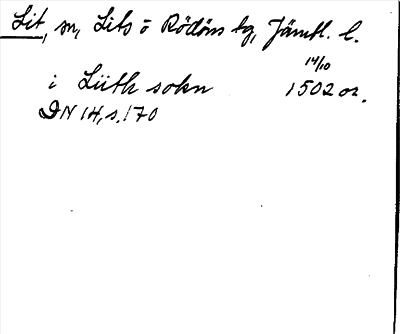 Lit, sn, Lits o Rödöns tg, Jämtl. l.
14/10
i Liith sokn 1502 or.
DN 14, s. 170